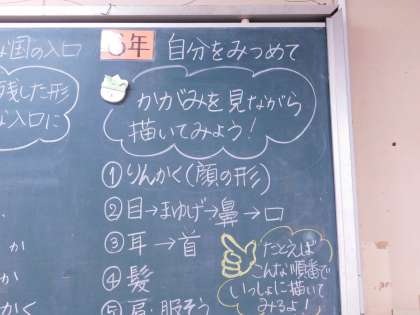 な国の入口
残した形
な入口に
6年 自分をみつめて
かがみを見ながら
描いてみよう!
①りんかく(顔の形)
②目→まゆげ→鼻→口
③耳→首
④髪
⑤肩・服そう
たとえば
こんな順番で
いっしょに描いて
みるよ!
か
かく